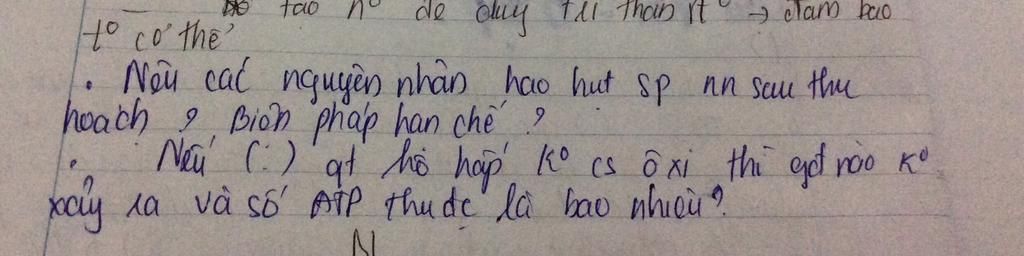 tạo n° để duy trì thân t° → đảm bảo
t° cơ thể
. Nêu các nguyên nhân hao hụt sp nn sau thu
hoạch ? Biện pháp hạn chế ?
. Nếu (:) qt hô hấp K° cs ôxi thì gđ nào K°
xảy ra và số ATP thu đc là bao nhiêu?
N